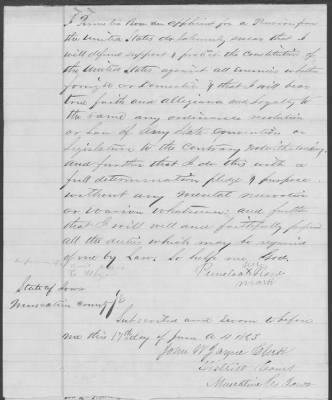 I Permelia Rose an applicant for a Pension from
the United States do Solemnly swear that I
will defend support & protect the Constitution of
the United States against all Enemies whether
foreign or domestic & that I will bear
true faith and Allegiance and Loyalty to
the same any ordinance resolution
or Law of Any State Convention or
Legislature to the Contrary notwithstanding.
and further that I do this with a
full determination pledge & purpose
without any mental reservation
or evasion whatsoever, and further
that I will well and faithfully perform
all the duties which may be required
of me by Law. So help me God.
her
Permelia X Rose
mark
State of Iowa
Muscatine County } SS
Subscribed and Sworn to before
me this 17th day of June A D 1865
John W Jayne Clerk
District Court
Muscatine Co Iowa